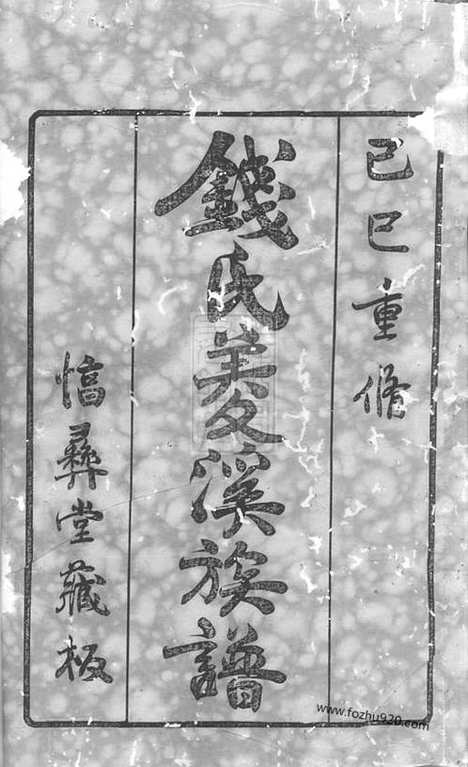 己巳重脩
錢氏菱溪族譜
惇彞堂藏板
www.fozhu920.com